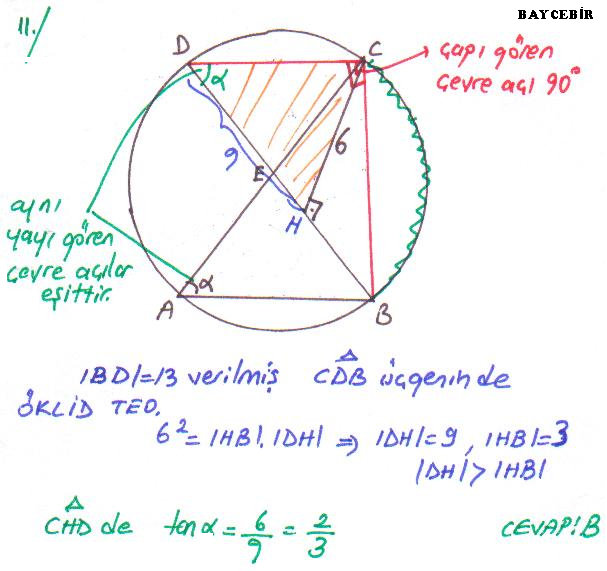 11./
BAYCEBİR
D
C
çapı gören
çevre açı 90°
α
9
6
E
H
aynı
yayı gören
çevre açılar
eşittir.
α
A
B
|BD|=13 verilmiş CDB üçgeninde
ÖKLİD TEO.
6² = |HB|.|DH| ⇒ |DH|=9, |HB|=3
|DH|>|HB|
CHD de tanα = 6/9 = 2/3
CEVAP:B